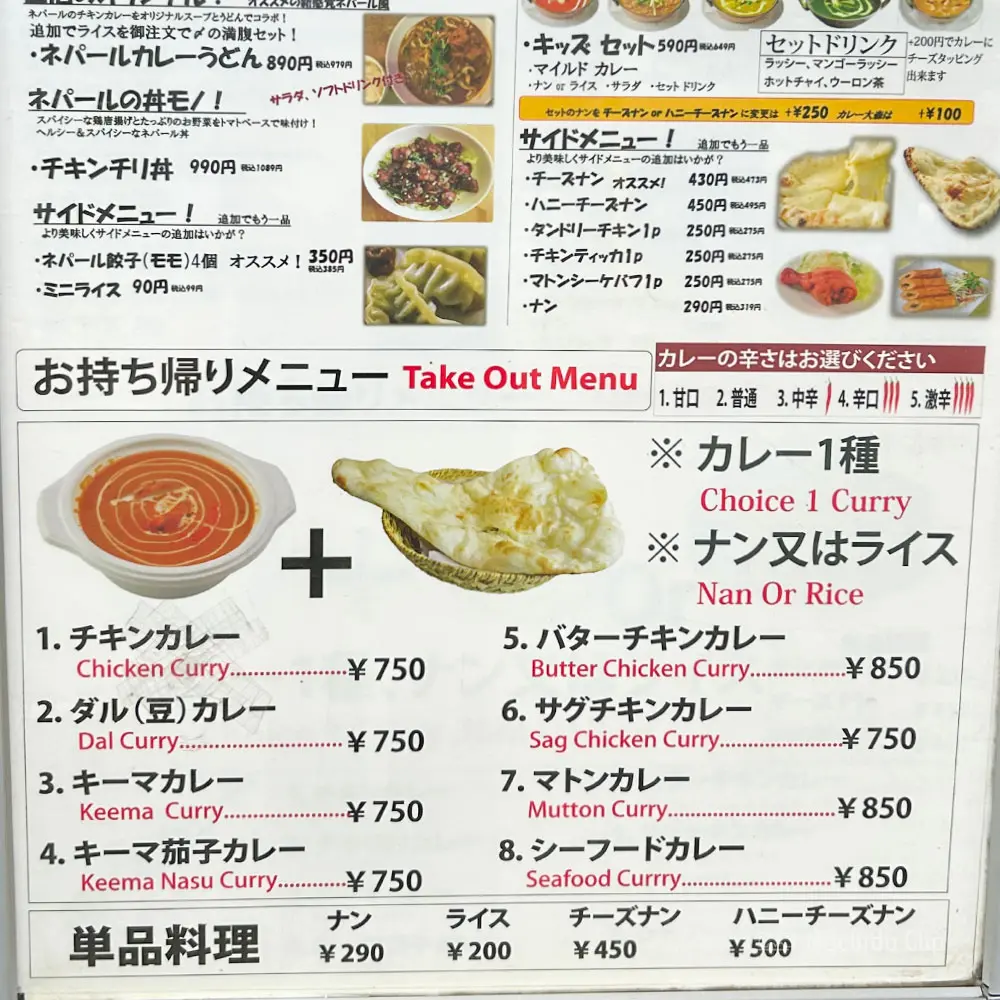 ネパールのチキンカレーをオリジナルスープとうどんでコラボ！
追加でライスを御注文で〆の満腹セット！
・ネパールカレーうどん 890円 税込979円
サラダ、ソフトドリンク付き
ネパールの丼モノ！
スパイシーな鶏唐揚げとたっぷりのお野菜をトマトベースで味付け！
ヘルシー＆スパイシーなネパール丼
・チキンチリ丼 990円 税込1089円
サイドメニュー！ 追加でもう一品
より美味しくサイドメニューの追加はいかが？
・ネパール餃子（モモ）4個 オススメ！ 350円 税込385円
・ミニライス 90円 税込99円
・キッズ セット 590円 税込649円
・マイルド カレー
・ナン or ライス ・サラダ ・セットドリンク
セットドリンク
ラッシー、マンゴーラッシー
ホットチャイ、ウーロン茶
+200円でカレーに
チーズタッピング
出来ます
セットのナンを チーズナン or ハニーチーズナン に変更は +￥250 カレー大盛は +￥100
サイドメニュー！ 追加でもう一品
より美味しくサイドメニューの追加はいかが？
・チーズナン オススメ！ 430円 税込473円
・ハニーチーズナン 450円 税込495円
・タンドリーチキン1p 250円 税込275円
・チキンティッカ1p 250円 税込275円
・マトンシーケバブ1p 250円 税込275円
・ナン 290円 税込319円
お持ち帰りメニュー Take Out Menu
カレーの辛さはお選びください
1. 甘口 2. 普通 3. 中辛 4. 辛口 5. 激辛
※ カレー1種
Choice 1 Curry
※ ナン又はライス
Nan Or Rice
+
1. チキンカレー
Chicken Curry..................￥750
2. ダル（豆）カレー
Dal Curry.........................￥750
3. キーマカレー
Keema Curry..................￥750
4. キーマ茄子カレー
Keema Nasu Curry..........￥750
5. バターチキンカレー
Butter Chicken Curry..............￥850
6. サグチキンカレー
Sag Chicken Curry..................￥750
7. マトンカレー
Mutton Curry.........................￥850
8. シーフードカレー
Seafood Currry......................￥850
単品料理
ナン
￥290
ライス
￥200
チーズナン
￥450
ハニーチーズナン
￥500